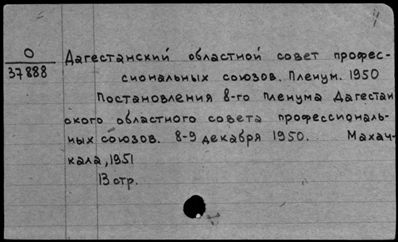 О
37888
Дагестанский областной совет профес-
сиональных союзов. Пленум. 1950
Постановления 8-го пленума Дагестан
ского областного совета профессиональ-
ных союзов. 8-9 декабря 1950. Махач-
кала, 1951
13 стр.